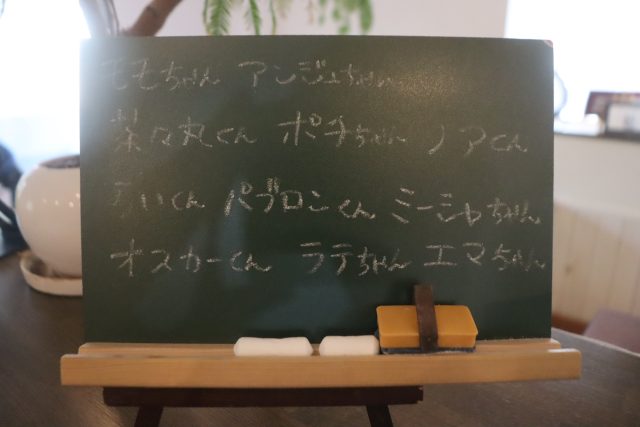 モモちゃん アンジュちゃん
茶々丸くん ポチちゃん ノアくん
いくん パブロンくん ミーシャちゃん
オスカーくん ラテちゃん エマちゃん